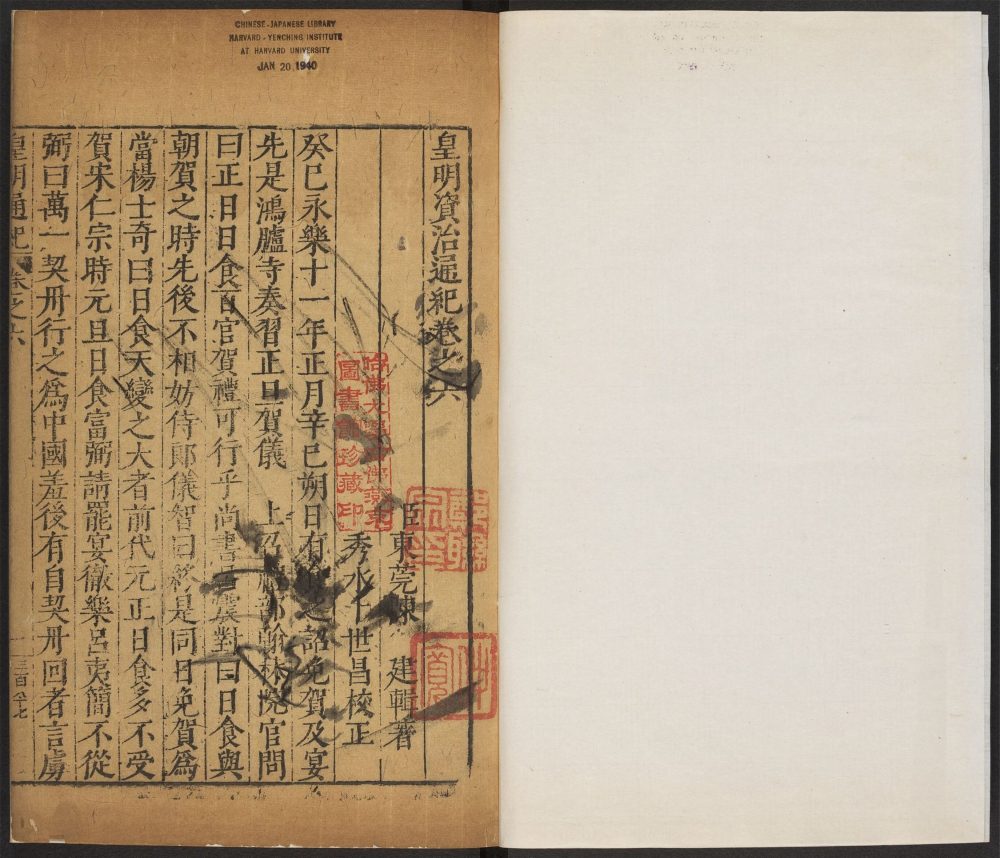 CHINESE-JAPANESE LIBRARY
HARVARD-YENCHING INSTITUTE
AT HARVARD UNIVERSITY
JAN 20 1940
皇明資治通紀卷之六
臣東莞陳 建輯著
秀水卜世昌校正
癸巳永樂十一年正月辛巳朔日有食之詔免賀及宴
先是鴻臚寺奏習正旦賀儀 上召禮部翰林院官問
曰正旦日食百官賀禮可行乎尚書呂震對曰日食與
朝賀之時先後不相妨侍郎儀智曰終是同日免賀為
當楊士奇曰日食天變之大者前代元正日食多不受
賀宋仁宗時元旦日食富弼請罷宴徹樂呂夷簡不從
弼曰萬一契丹行之為中國羞後有自契丹回者言虜
皇明通紀 卷之六
三百八十七
哈佛大學哈佛燕京
圖書館珍藏印